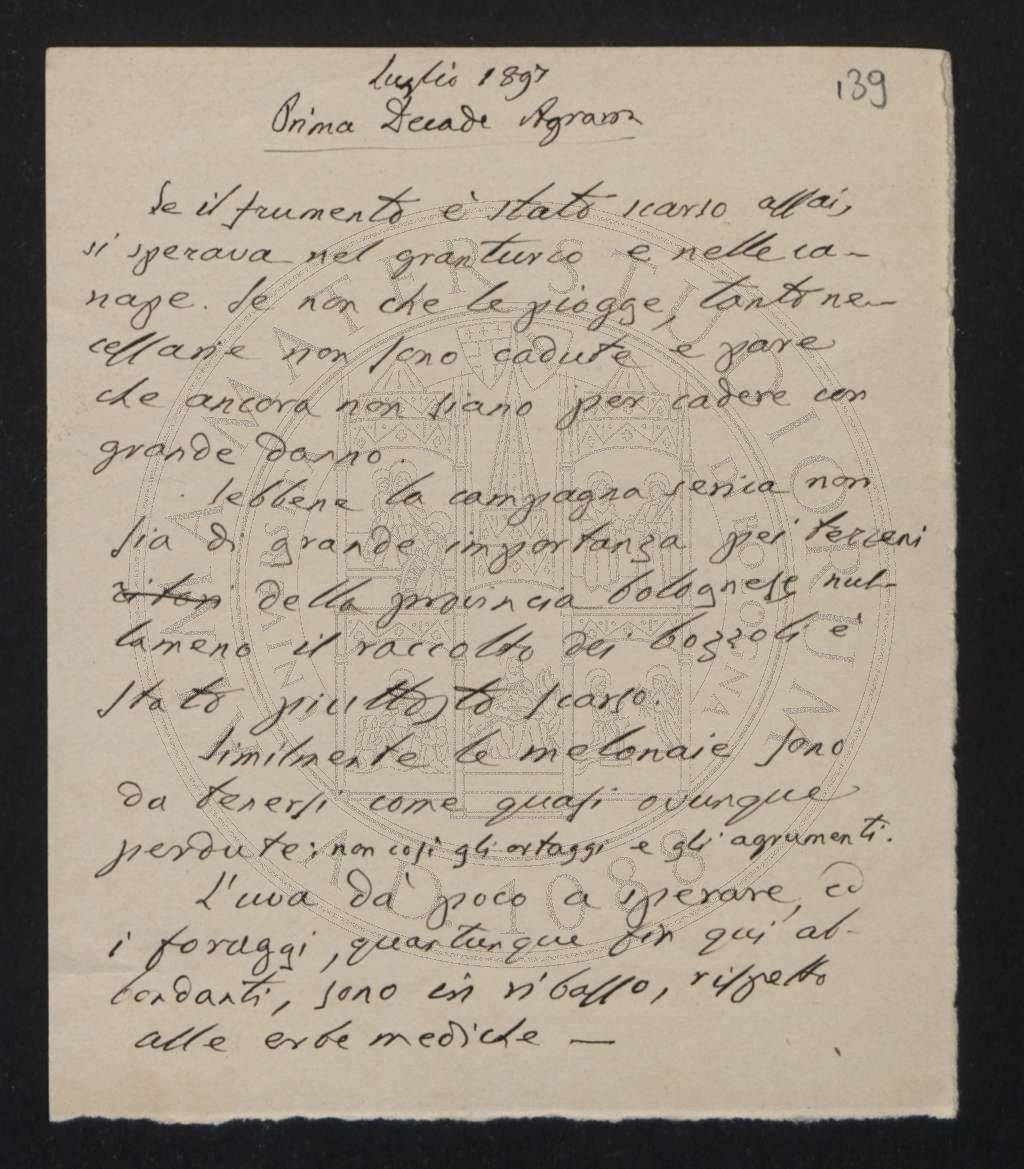 Luglio 1897
139
Prima Decade Agraria
Se il frumento è stato scarso assai,
si sperava nel granturco e nelle ca-
nape. Se non che le piogge, tanto ne-
cessarie non sono cadute e pare
che ancora non siano per cadere con
grande danno.
Sebbene la campagna serica non
sia di grande importanza pei terreni
della provincia bolognese nul-
lameno il raccolto dei bozzoli è
stato piuttosto scarso.
Similmente le melonaie sono
da tenersi come quasi ovunque
perdute; non così gli ortaggi e gli agrumenti.
L'uva dà poco a sperare, ed
i foraggi, quantunque fin qui ab-
bondanti, sono in ribasso, rispetto
alle erbe mediche —
ALMA MATER STUDIORUM
A.D. 1088